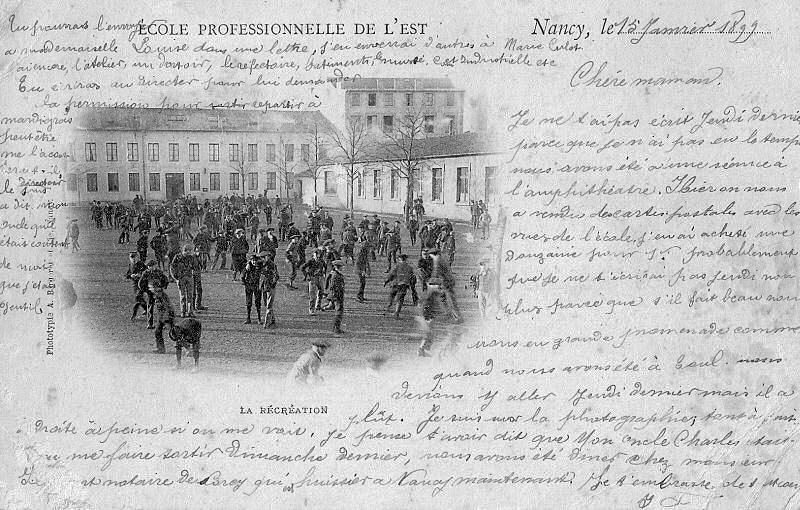 ÉCOLE PROFESSIONNELLE DE L'EST
Nancy, le 15 Janvier 1899
Chère maman.
Je ne t'ai pas écrit Jeudi dernier
parce que je n'ai pas eu le temps
nous avons été a une séance à
l'amphithéatre. Hier on nous
a vendu des cartes postales avec les
vues de l'école, j'en ai acheté une
douzaine pour probablement
que je ne t'écrirai pas Jeudi non
plus parce que s'il fait beau nous
irons en grande promenade comme
quand nous avons été à Toul. nous
devions y aller Jeudi dernier mais il a
plût. Je suis sur la photographie, tout à fait
à droite à peine si on me voit. Je pense t'avoir dit que Mon oncle Charles
me faire sortir Dimanche dernier, nous avons été diner chez monsieur
notaire de qui est huissier a Nancy maintenant. Je t'embrasse
Tu pourrais l'envoyer
a mademoiselle Louise dans une lettre, j'en enverrai d'autres à Marie
l'atelier, un dortoir, le réfectoire, batiments
Tu écriras au Directeur pour lui demander
la permission pour sortir
mardi gras
peut être
me l'accor
le Directeur
a dit
oncle qu'il
était content
de moi
que j'étais
gentil
Phototypie A.
LA RÉCRÉATION